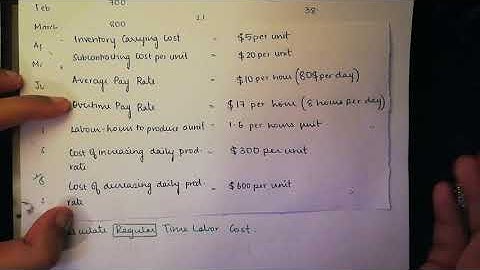 Feb 700
March 800 21 38
Ap - Inventory Carrying Cost = $5 per unit
Mi - Subcontracting Cost per unit = $20 per unit
Ju Average Pay Rate = $10 per hour (80$ per day)
Overtime Pay Rate = $17 per hour (8 hours per day)
Labour-hours to produce a unit - 1.6 per hours unit
Cost of increasing daily prod- - $300 per unit
rate
Cost of decreasing daily prod- - $600 per unit
rate
alculate Regular Time Labor Cost.